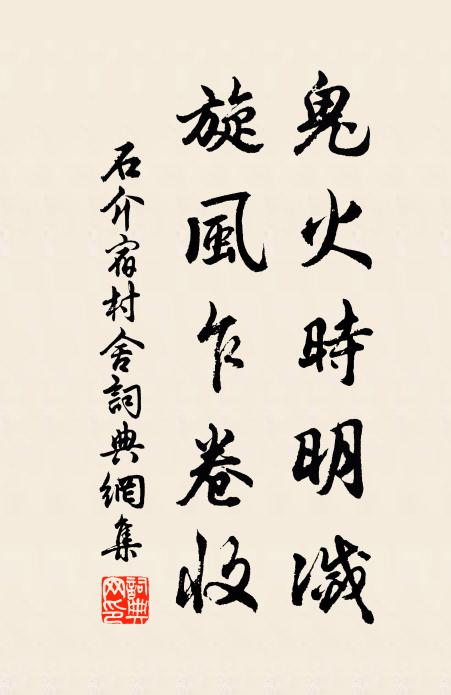 鬼火時明滅
旋風乍卷收
石介宿村舍詞典網集
詞典网印